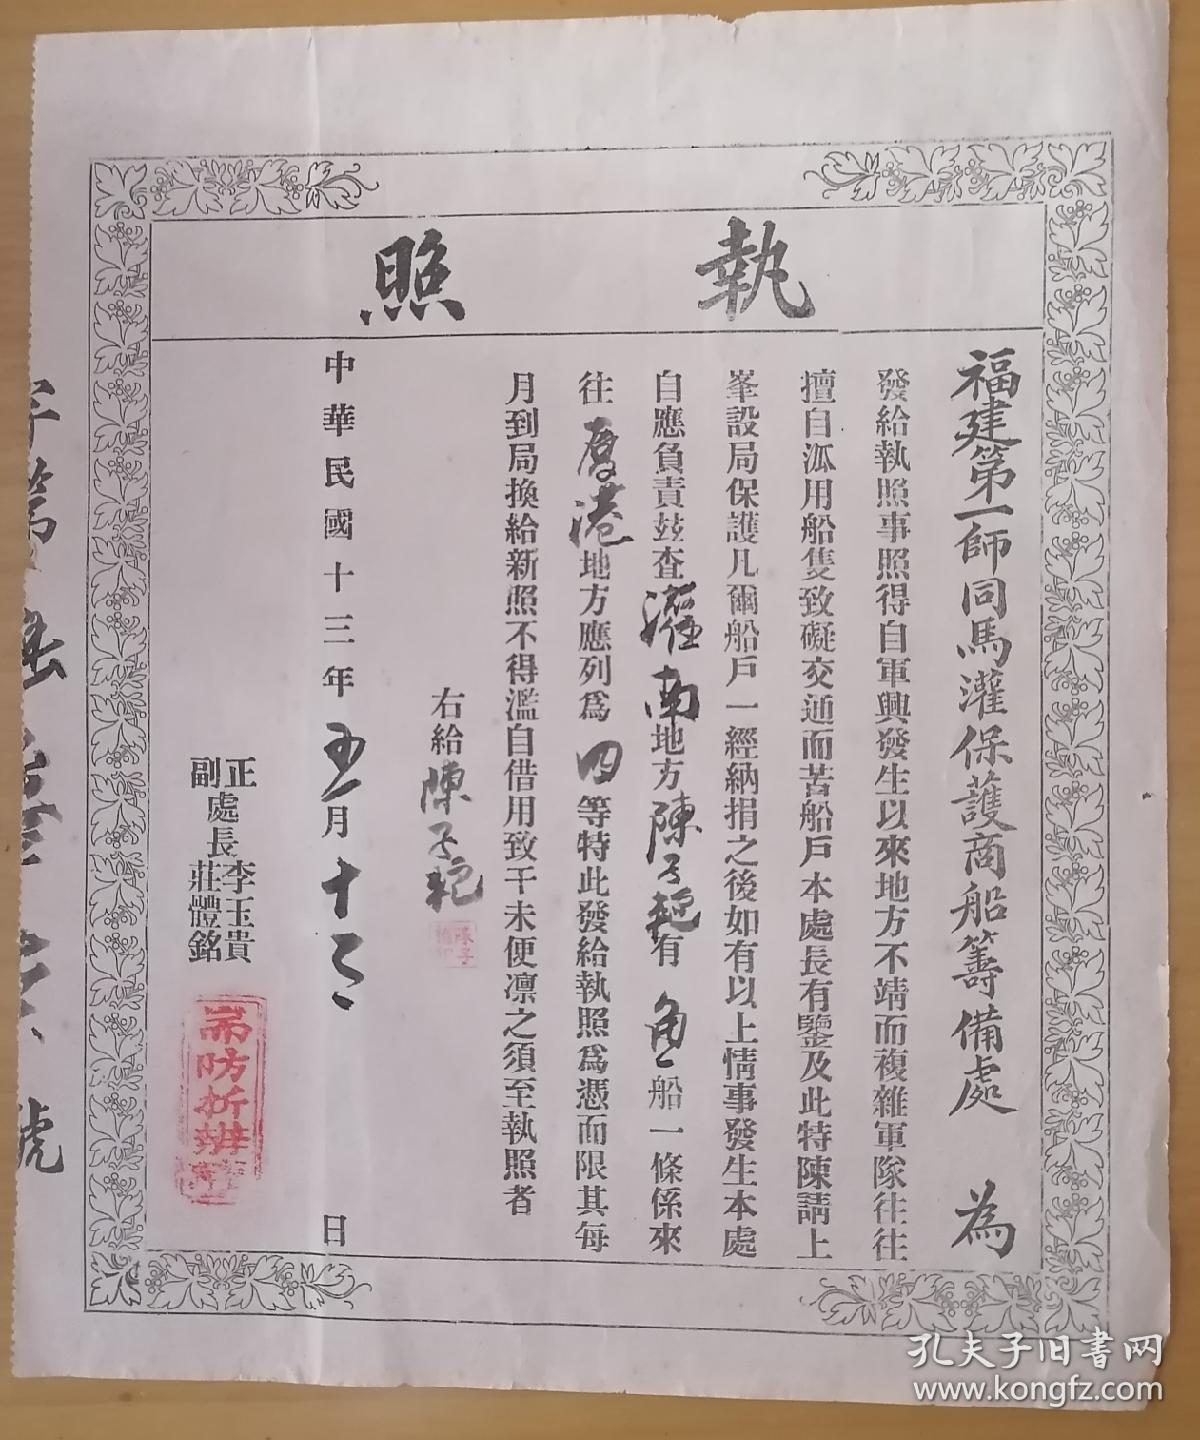 執照
福建第一師同馬灌保護商船籌備處 為
發給執照事照得自軍興發生以來地方不靖而複雜軍隊往往
擅自派用船隻致礙交通而苦船戶本處長有鑒及此特陳請上
峯設局保護凡爾船戶一經納捐之後如有以上情事發生本處
自應負責玆查灌南地方陳子 有 船一條係來
往厦港地方應列為四等特此發給執照為憑而限其每
月到局換給新照不得濫自借用致干未便凛之須至執照者
右給陳子
中華民國十三年五月十二日
正副處長李玉貴莊體銘
字第 號
孔夫子旧书网
www.kongfz.com